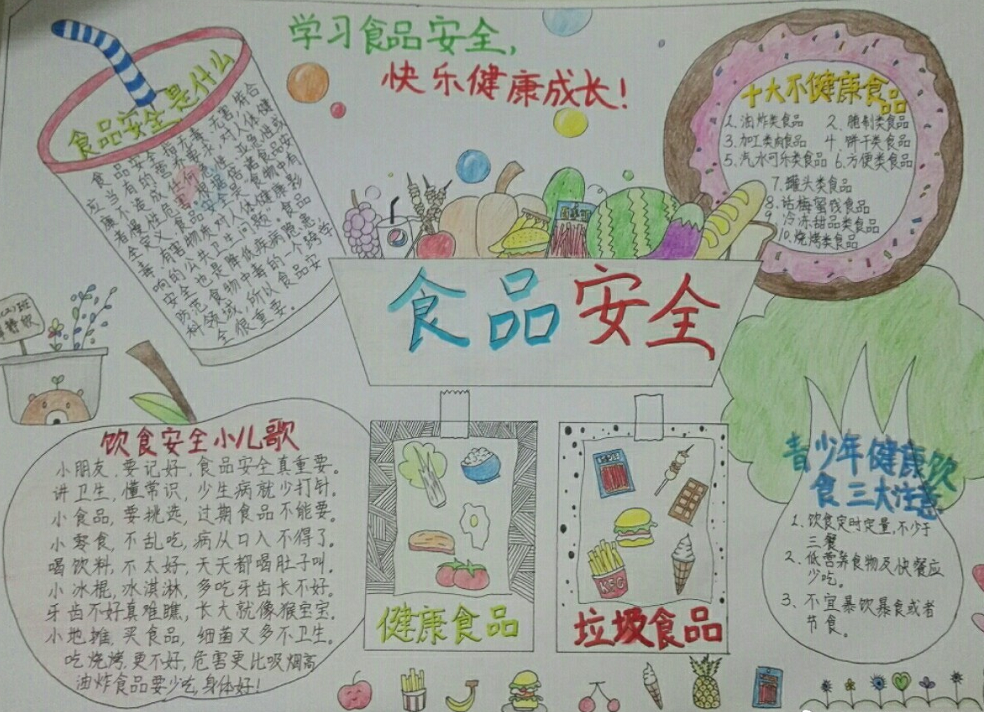 学习食品安全，
快乐健康成长！
食品安全是什么
食品安全指食品无毒、无害，符合
应当有的营养要求，对人体健
康不造成任何急性、亚急性或
者慢性危害。根据
全定义，食品安全是
毒、有害物质对人体健康影
响的公共卫生问题。食品
安全也是
防范食物中毒的一个跨学
科领域，所以食品安
全很重要。
十大不健康食品
1. 油炸类食品 2. 腌制类食品
3. 加工类肉食品 4. 饼干类食品
5. 汽水可乐类食品 6. 方便类食品
7. 罐头类食品
8. 话梅蜜饯食品
9. 冷冻甜品类食品
10. 烧烤类食品
食品安全
饮食安全小儿歌
小朋友，要记好，食品安全真重要。
讲卫生，懂常识，少生病就少打针。
小食品，要挑选，过期食品不能要。
小零食，不乱吃，病从口入不得了。
喝饮料，不太好，天天都喝肚子叫。
小冰棍，冰淇淋，多吃牙齿长不好。
牙齿不好真难瞧，长大就像猴宝宝。
小地摊，买食品，细菌又多不卫生。
吃烧烤，更不好，危害更比吸烟高
油炸食品要少吃，身体好！
健康食品
KFC
垃圾食品
青少年健康饮
食三大注意
1. 饮食定时定量，不少于
三餐
2. 低营养食物及快餐应
少吃。
3. 不宜暴饮暴食或者
节食。